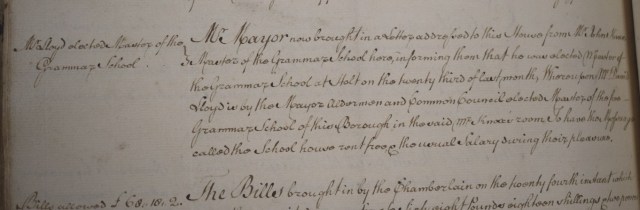 Mr Lloyd elected Master of the
Grammar School.
Mr Mayor now brought in a Letter addressed to this House from Mr John
Master of the Grammar School here, informing them that he was elected Master of
the Grammar School at Holt on the twenty third of last month, Whereupon Mr
Lloyd is by the Mayor Aldermen and Common Council elected Master of the free
Grammar School of this Borough in the said Mr Knox's room To have the
called the School house rent free & the usual Salary during their pleasure.
Bills allowed £68:18:2.
The Bills brought in by the Chamberlain on the twenty fourth instant which
eight Pounds eighteen shillings & two pence